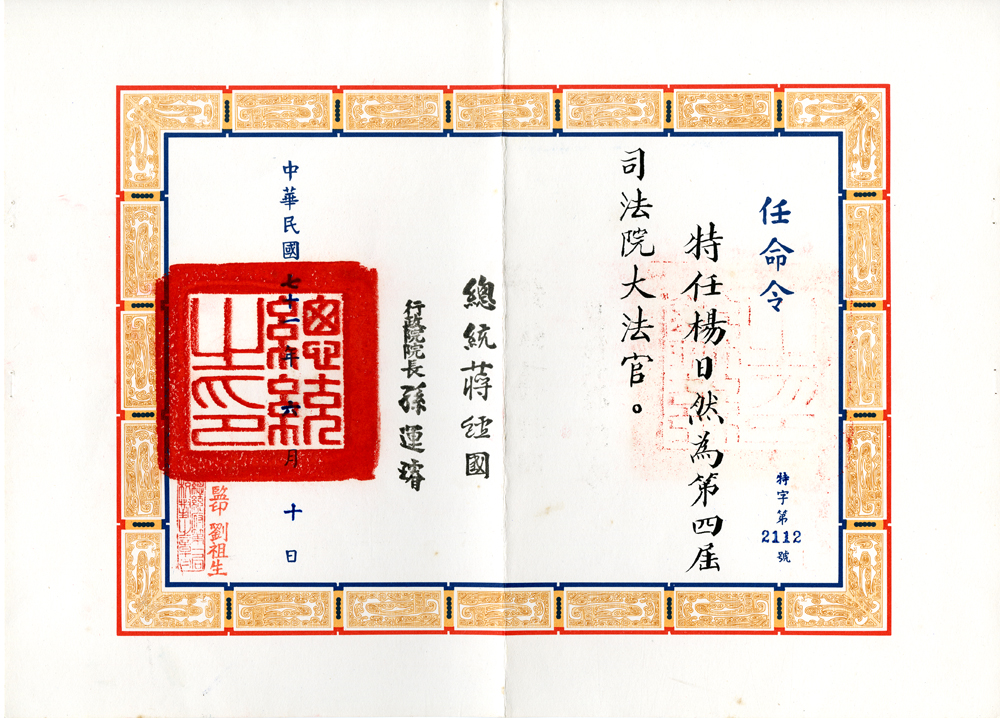 任命令
特任楊日然為第四屆
司法院大法官。
特字第2112號
總統蔣經國
行政院院長孫運璿
中華民國七十一年六月十日
總統之印
監印 劉祖生